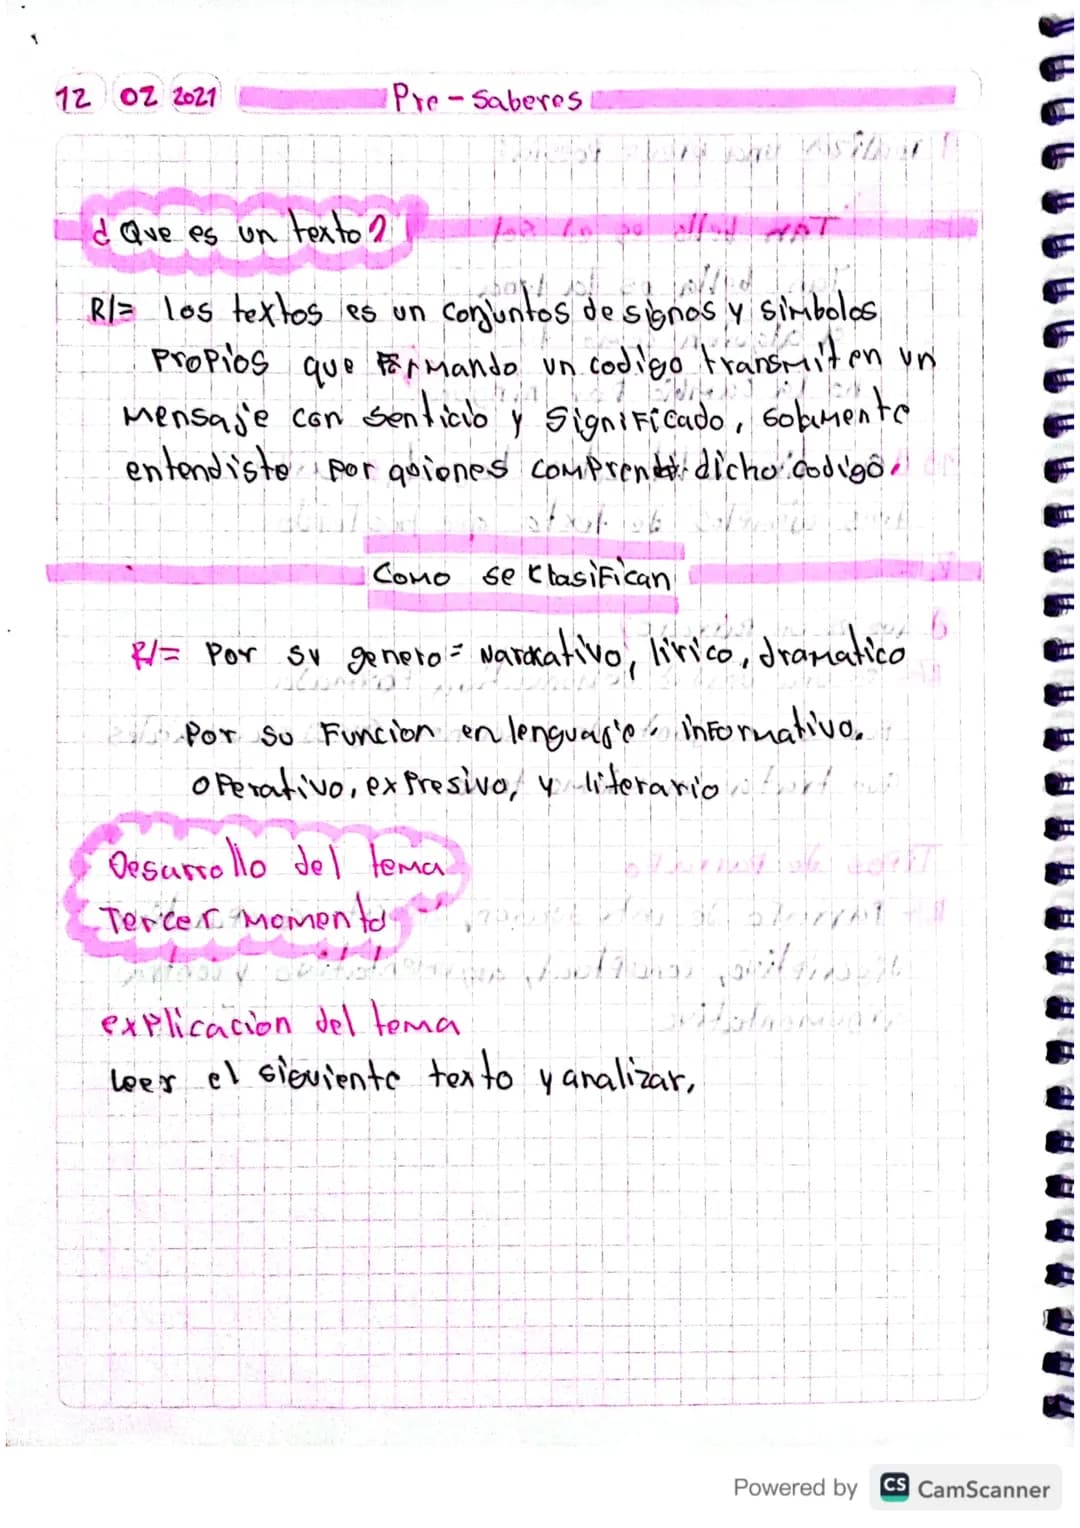 12 02 2021 Pre-Saberes
¿Que es un texto?
R/= los textos es un conjuntos de signos y simbolos
propios que formando un codigo transmiten un
mensaje con sentido y significado, solamente
entendiste por quienes comprende dicho codigo.
Como se clasifican
R/= Por su genero= narrativo, lirico, dramatico
Por su Funcion en lenguaje informativo.
operativo, expresivo, y literario
Desarrollo del tema
Tercer momento
explicacion del tema
leer el siguiente texto y analizar.
Powered by CS CamScanner